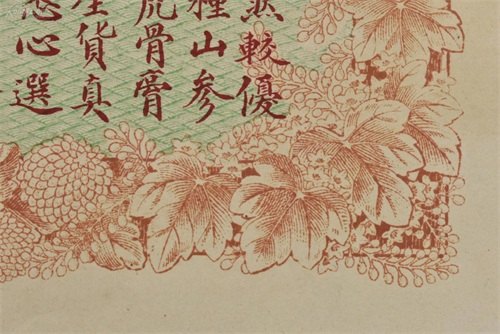 然較優
種山参
虎骨膏
產貨真
心選